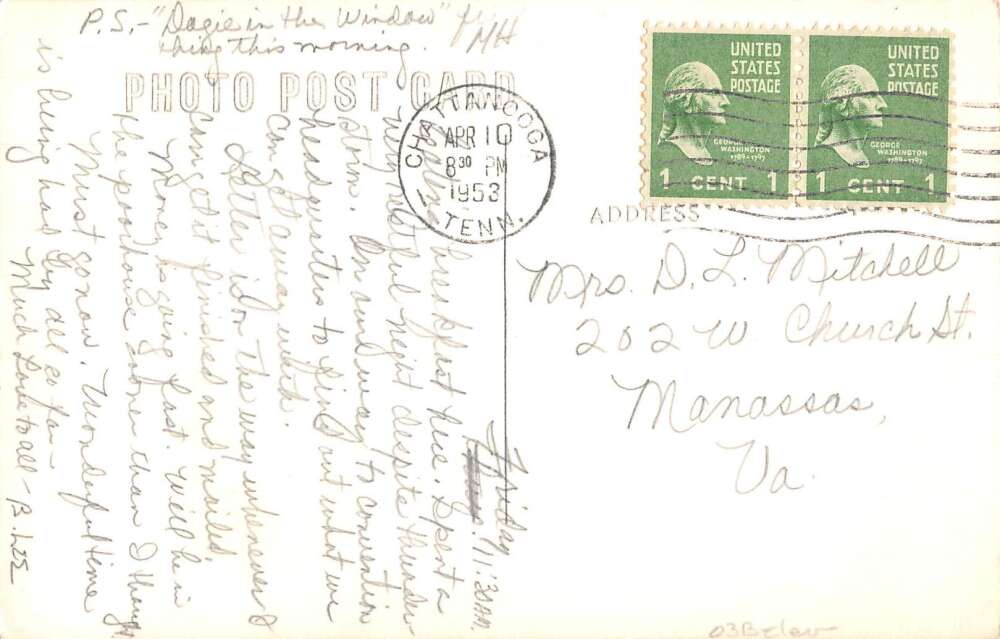 P.S.- "Dogie in the Window"
this morning. MH
PHOTO POST CARD
Friday
11:30 A.M.
breakfast here. Spent a
very restful night despite thunder
storm. On our way to convention
headquarters to find out what we
can get away with.
Letter is on the way whenever I
can get it finished and mailed.
Money is going fast. Will be in
the poorhouse sooner than I thought.
Must go now. Wonderful time
is being had by all so far -
Much Love to all - B. Lee
CHATTANOOGA
APR 10
8 30 PM
1953
TENN.
UNITED
STATES
POSTAGE
GEORGE
WASHINGTON
1789-1797
1 CENT 1
UNITED
STATES
POSTAGE
GEORGE
WASHINGTON
1789-1797
1 CENT 1
ADDRESS
Mrs. D. L. Mitchell
202 W Church St.
Manassas,
Va.